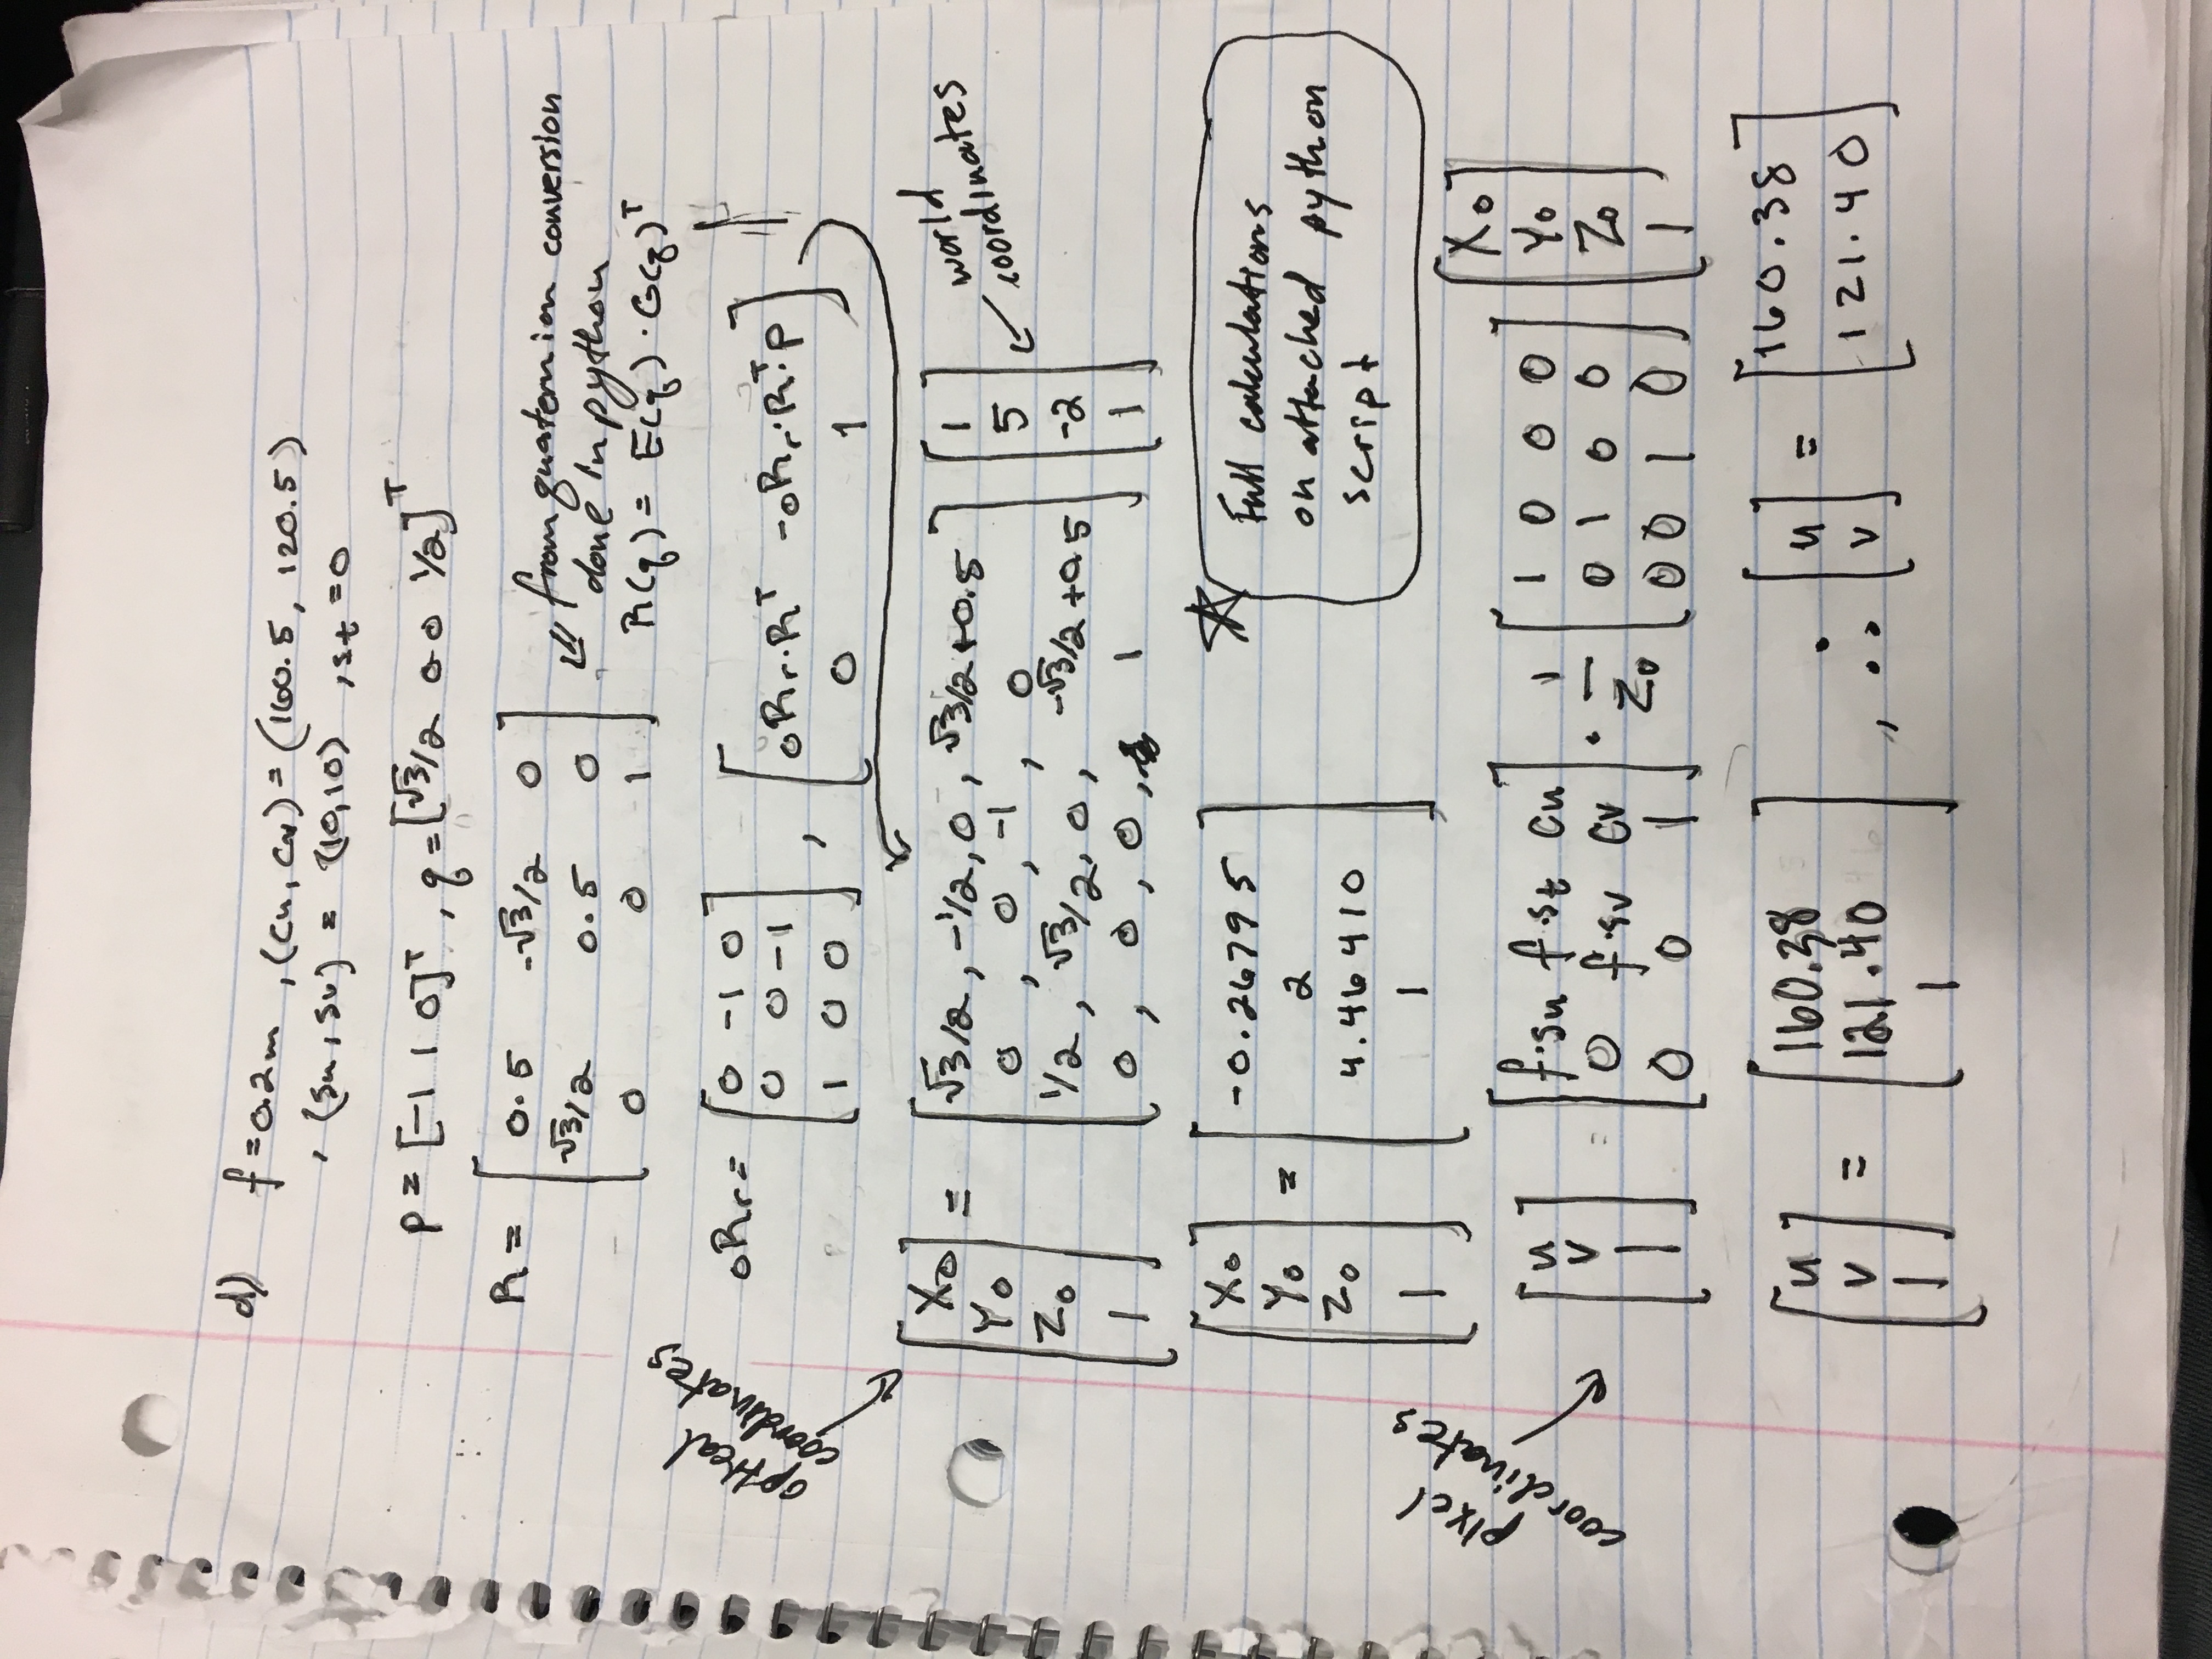 d) f = 0.2m , (cu, cv) = (160.5, 120.5)
, (su, sv) = (10,10) , st = 0
p = [-1 1 0]ᵀ , q = [√3/2 0 0 1/2]ᵀ
R = [ 0.5 -√3/2 0
√3/2 0.5 0
0 0 1 ]
from quaternion conversion
done in python
R(q) = E(q) · G(q)ᵀ
optical
coordinates
oRr = [ 0 -1 0
0 0 -1
1 0 0 ] ,
[ oRr·Rᵀ -oRr·Rᵀ·p
0 1 ]
[ Xo
Yo
Zo
1 ]
=
[ √3/2 , -1/2, 0 , √3/2+0.5
0 , 0 , -1 , 0
1/2 , √3/2, 0 , -√3/2+0.5
0 , 0 , 0 , 1 ]
[ 1
5
-2
1 ]
world
coordinates
[ Xo
Yo
Zo
1 ]
=
[ -0.26795
2
4.46410
1 ]
☆ Full calculations
on attached python
script
pixel
coordinates
[ u
v
1 ]
=
[ f·su f·st cu
0 f·sv cv
0 0 1 ]
· 1/Zo
[ 1 0 0 0
0 1 0 0
0 0 1 0 ]
[ Xo
Yo
Zo
1 ]
[ u
v
1 ]
=
[ 160.38
121.40
1 ]
, ∴
[ u
v ]
=
[ 160.38
121.40 ]